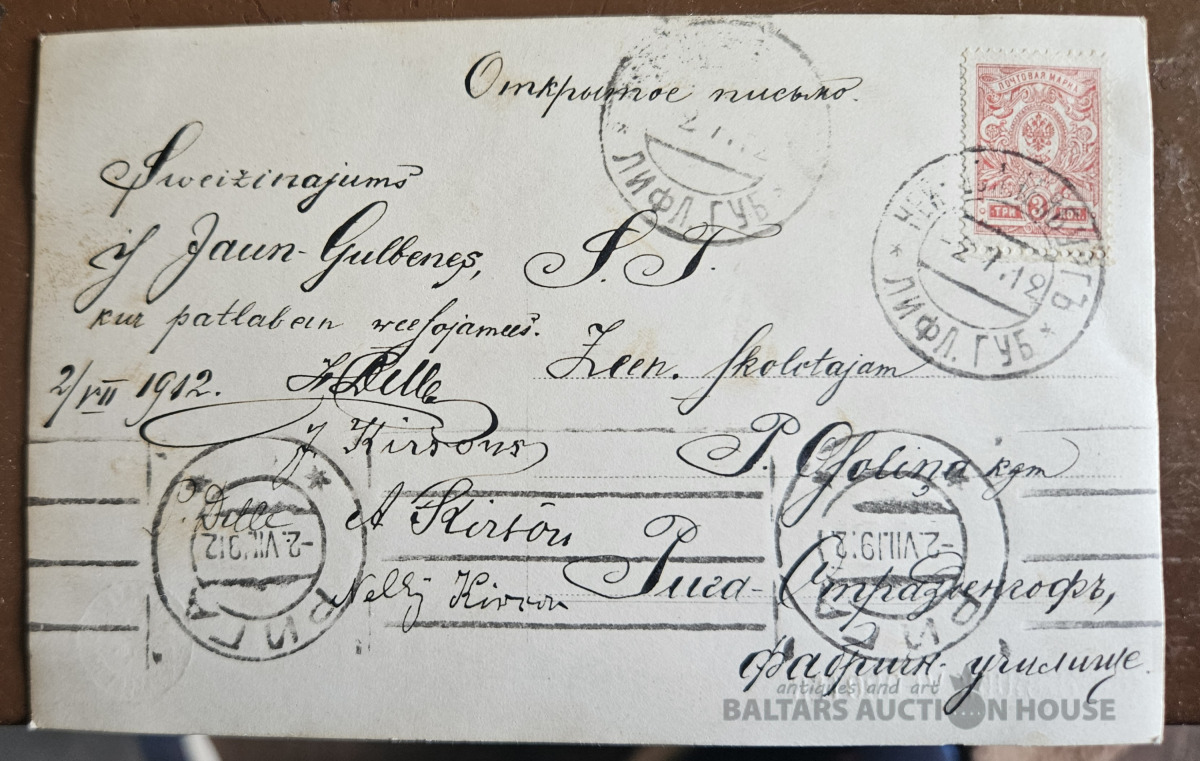 Открытое письмо.
ПОЧТОВАЯ МАРКА
ТРИ 3 КОП.
2 7.12
* ЛИФЛ. ГУБ *
-2 7.12
* ЛИФЛ. ГУБ *
Sweizinajums
iſ Jaun-Gulbenes, S. T.
kur patlaban weeſojamees.
2/VII 1912.
Delle
Zeen. ſkolotajam
J Kirsons
P. Oſoliņa kgm
Delle
A Kirsōn
Nelly Kirson
Рига-Стразденгофъ,
фабричн. училище.
РИГА
-2.VII.1912
РИГА
-2.VII.1912
antiques and art
BALTARS AUCTION HOUSE